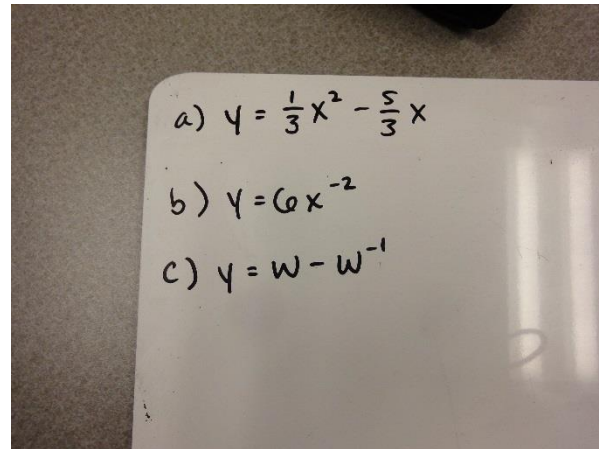 a) y = 1/3 x² - 5/3 x
b) y = 6x⁻²
c) y = w - w⁻¹